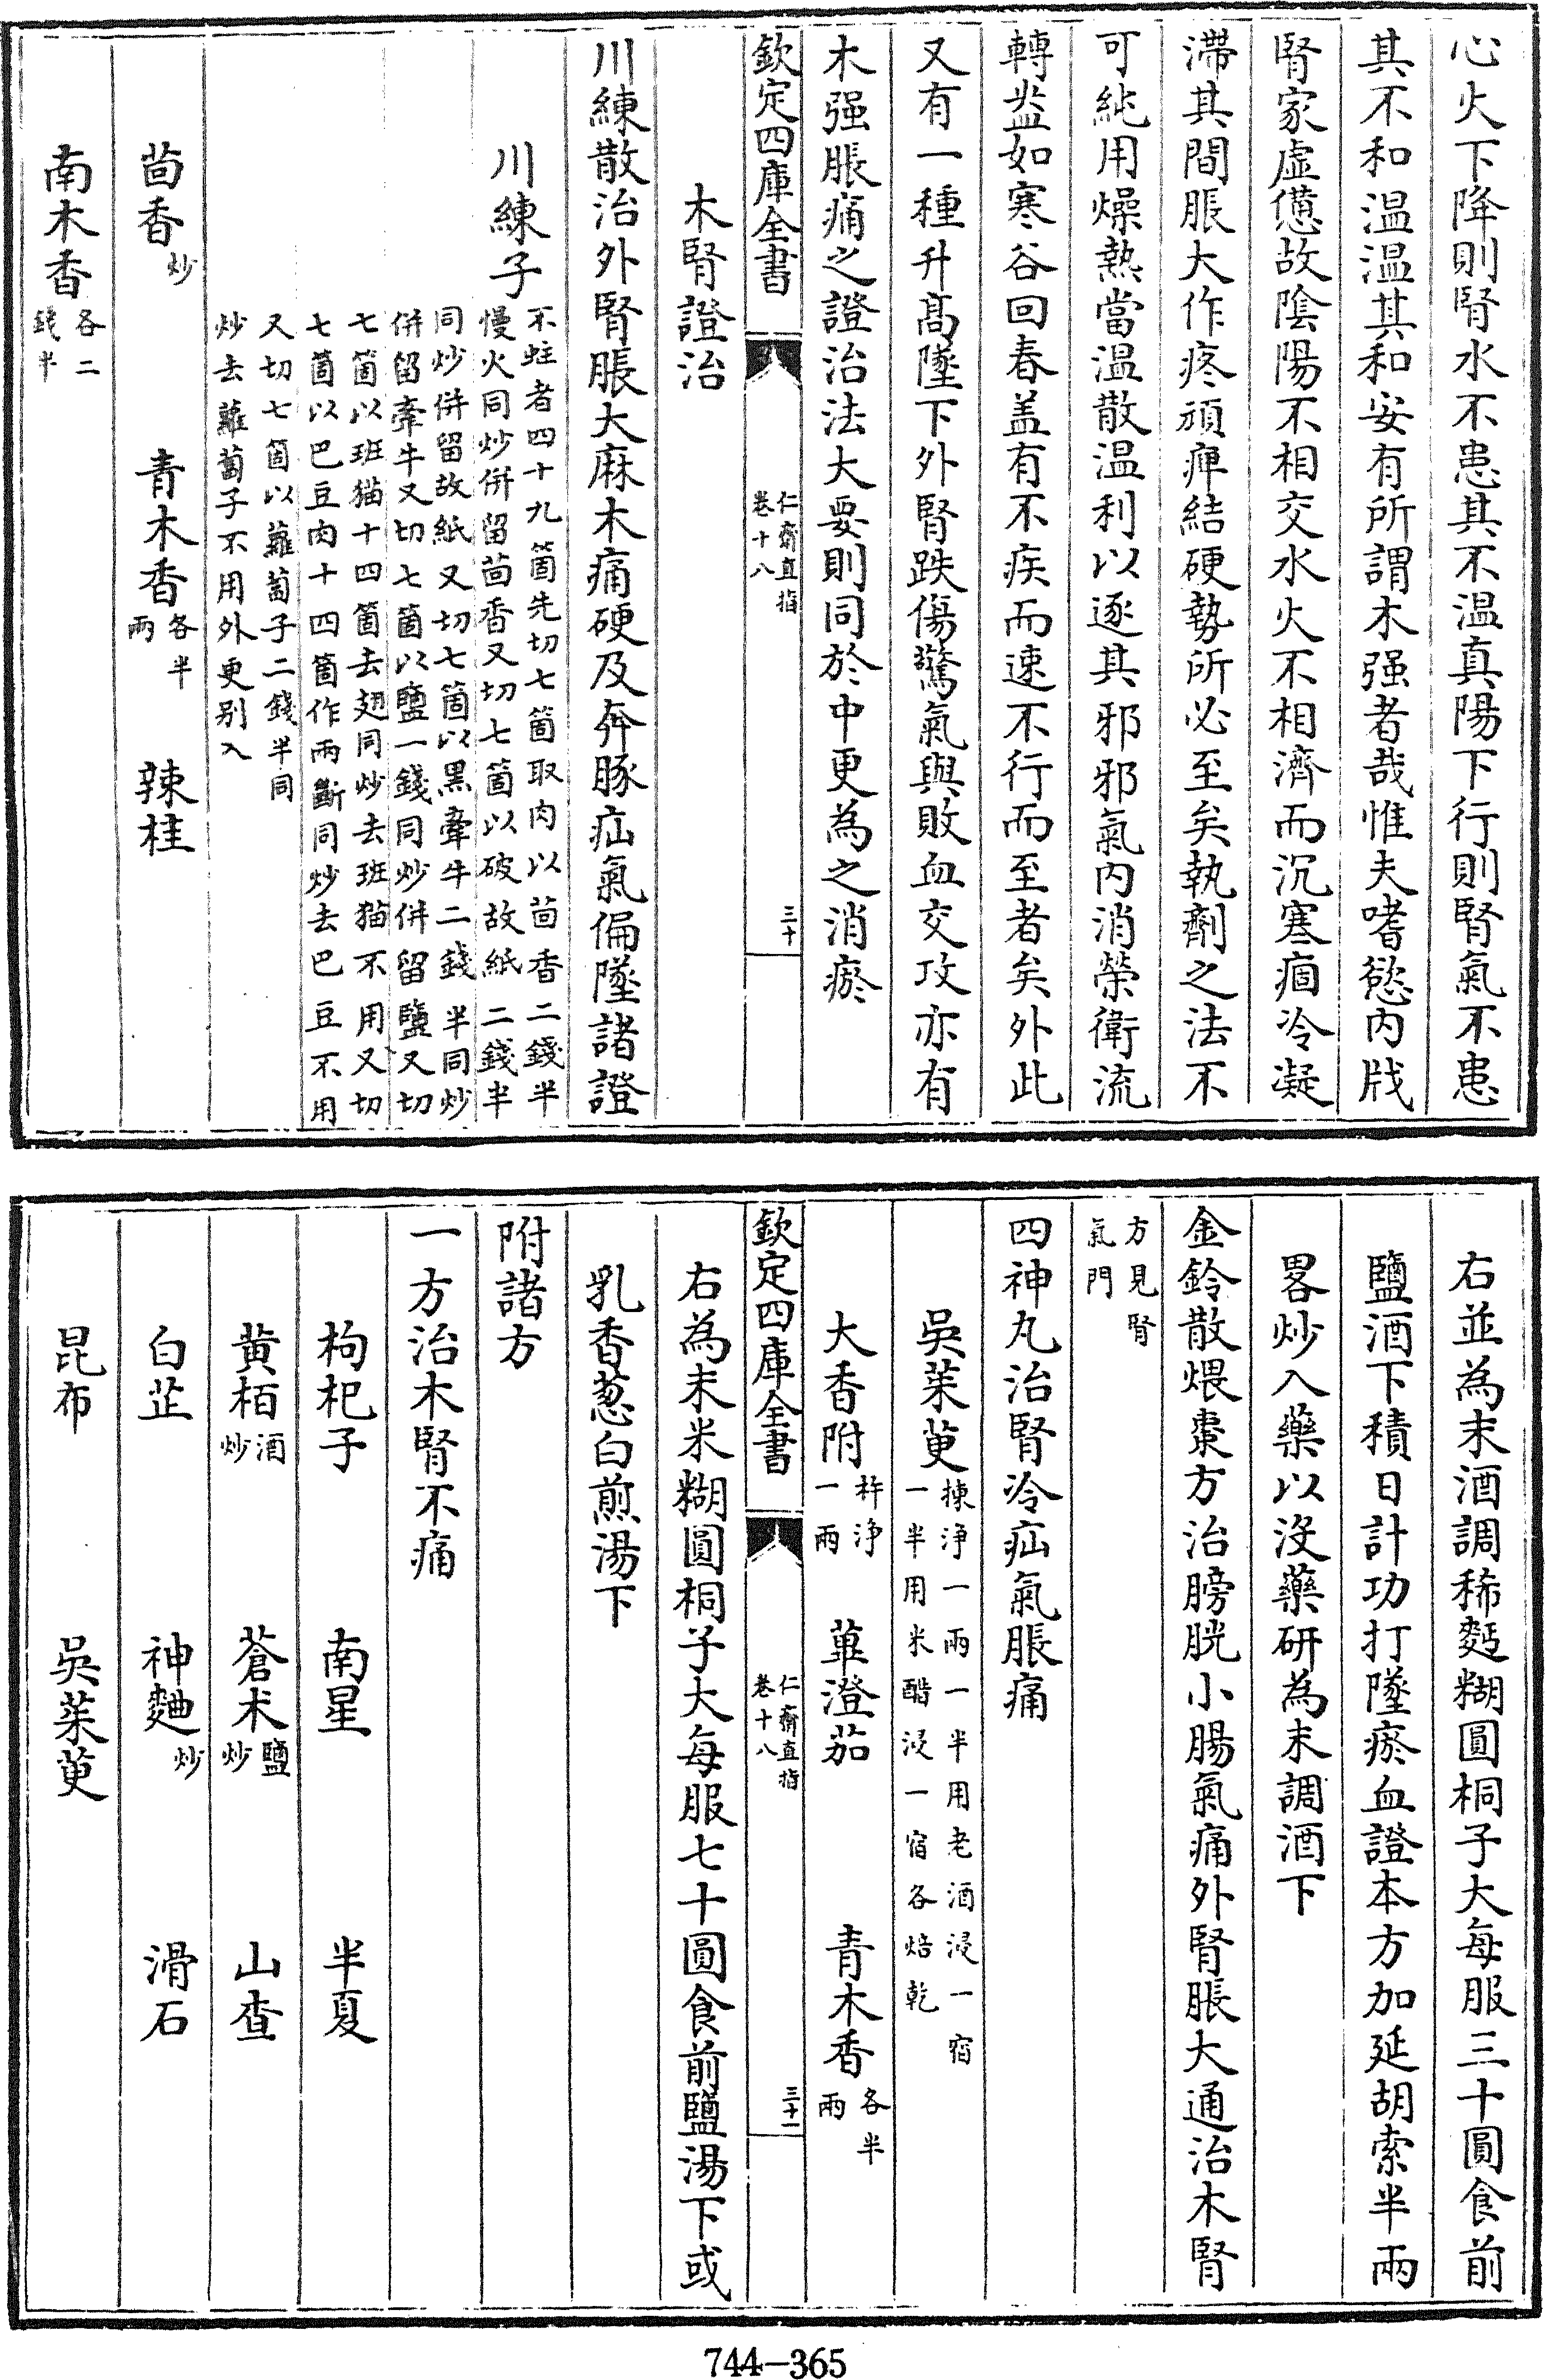 心火下降則腎水不患其不温真陽下行則腎氣不患
其不和温温其和安有所謂木强者哉惟夫嗜慾内戕
腎家虚憊故陰陽不相交水火不相濟而沉寒痼冷凝
滯其間脹大作疼頑痺結硬勢所必至矣執劑之法不
可純用燥熱當温散温利以逐其邪邪氣内消榮衛流
轉盎如寒谷回春盖有不疾而速不行而至者矣外此
又有一種升髙墜下外腎跌傷驚氣與敗血交攻亦有
木强脹痛之證治法大要則同於中更為之消瘀
欽定四庫全書
仁齋直指
卷十八
三十
木腎證治
川練散治外腎脹大麻木痛硬及奔豚疝氣偏墜諸證
川練子
不蛀者四十九箇先切七箇取肉以茴香二錢半
慢火同炒併留茴香又切七箇以破故紙二錢半
同炒併留故紙又切七箇以黒牽牛二錢半同炒
併留牽牛又切七箇以鹽一錢同炒併留鹽又切
七箇以班猫十四箇去翅同炒去班猫不用又切
七箇以巴豆肉十四箇作兩斷同炒去巴豆不用
又切七箇以蘿蔔子二錢半同
炒去蘿蔔子不用外更别入
茴香炒　青木香各半兩　辣桂
南木香各二錢半
右並為末酒調稀麪糊圓桐子大每服三十圓食前
鹽酒下積日計功打墜瘀血證本方加延胡索半兩
畧炒入藥以没藥研為末調酒下
金鈴散煨棗方治膀胱小腸氣痛外腎脹大通治木腎
方見腎
氣門
四神丸治腎冷疝氣脹痛
吳茱萸
揀浄一兩一半用老酒浸一宿
一半用米醋浸一宿各焙乾
大香附杵浄一兩　蓽澄茄　青木香各半兩
欽定四庫全書
仁齋直指
卷十八
三十一
右為末米糊圓桐子大每服七十圓食前鹽湯下或
乳香葱白煎湯下
附諸方
一方治木腎不痛
枸杞子　南星　半夏
黄栢酒炒　蒼术鹽炒　山查
白芷　神麯炒　滑石
昆布　吳茱萸
744-365